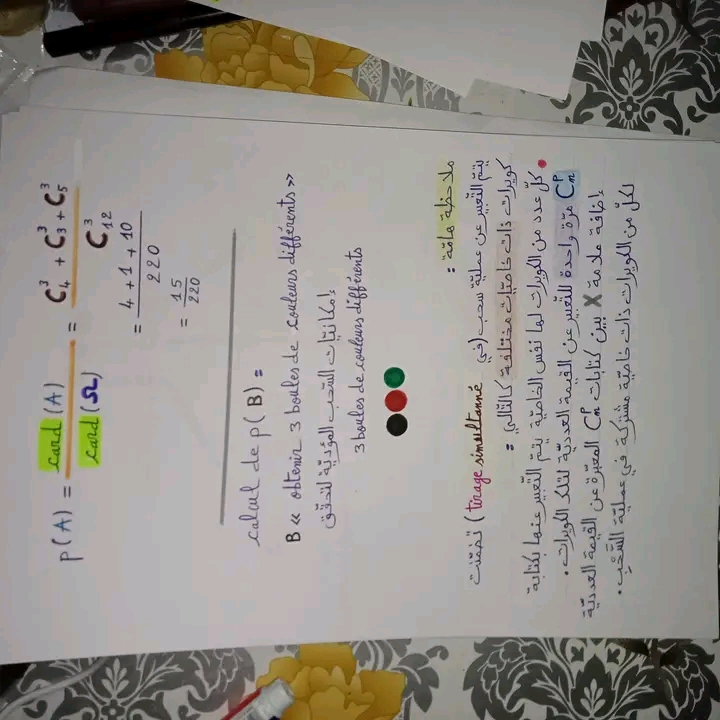 P(A) = card(A) / card(Ω) = C₄³ + C₃³ + C₅³ / C₁₂³
= 4 + 1 + 10 / 220
= 15 / 220
calcul de p(B) =
B « obtenir 3 boules de couleurs différents »
إمكانيات السحب المؤدية للتحقق
3 boules de couleurs différents
ملاحظة هامة :
يتم التعبير عن عملية سحب (في tirage simultanné) تضمنت
كويرات ذات خاصيات مختلفة كالتالي :
كل عدد من الكويرات لها نفس الخاصية يتم التعبير عنها بكتابة
Cₙᵖ مرة واحدة للتعبير عن القيمة العددية لتلك الكويرات.
إضافة علامة X بين كتابات Cₙᵖ المعبرة عن القيمة العددية
لكل من الكويرات ذات خاصية مشتركة في عملية السحب.